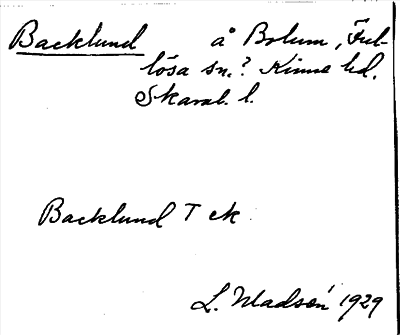 Backlund å Bolum, Ful-
lösa sn.? Kinne hd.
Skarab. l.
Backlund T ek
L. Wadsén 1929